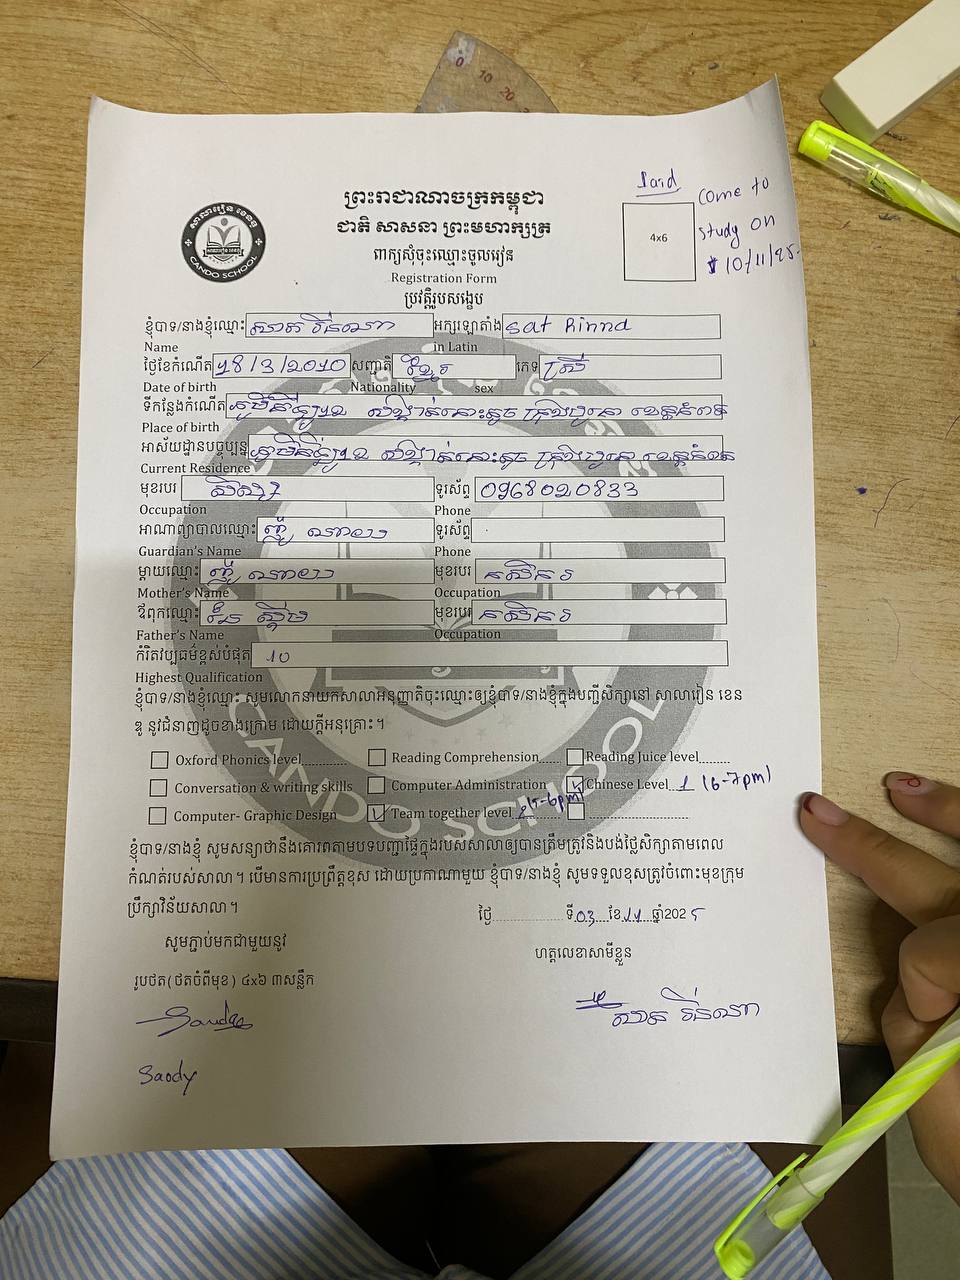 Paid
come to
study on
10/11/25.
4x6
សាលារៀន ខេនឌូ
CANDO SCHOOL
ព្រះរាជាណាចក្រកម្ពុជា
ជាតិ សាសនា ព្រះមហាក្សត្រ
ពាក្យសុំចុះឈ្មោះចូលរៀន
Registration Form
ប្រវត្តិរូបសង្ខេប
ខ្ញុំបាទ/នាងខ្ញុំឈ្មោះ សាត រ៉ិនណា អក្សរឡាតាំង Sat Rinna
Name in Latin
ថ្ងៃខែកំណើត 18/3/2010 សញ្ជាតិ ខ្មែរ ភេទ ស្រី
Date of birth Nationality sex
ទីកន្លែងកំណើត
Place of birth
អាស័យដ្ឋានបច្ចុប្បន្ន
Current Residence
មុខរបរ សិស្ស ទូរស័ព្ទ 0968020833
Occupation Phone
អាណាព្យាបាលឈ្មោះ ទូរស័ព្ទ
Guardian's Name Phone
ម្តាយឈ្មោះ មុខរបរ កសិករ
Mother's Name Occupation
ឪពុកឈ្មោះ មុខរបរ កសិករ
Father's Name Occupation
កំរិតវប្បធម៌ខ្ពស់បំផុត 10
Highest Qualification
ខ្ញុំបាទ/នាងខ្ញុំឈ្មោះ សូមលោកនាយកសាលាអនុញ្ញាតិចុះឈ្មោះឲ្យខ្ញុំបាទ/នាងខ្ញុំក្នុងបញ្ជីសិក្សានៅ សាលារៀន ខេន
ឌូ នូវជំនាញដូចខាងក្រោម ដោយក្តីអនុគ្រោះ។
Oxford Phonics level............ Reading Comprehension...... Reading Juice level........
Conversation & writing skills Computer Administration Chinese Level 1 (6-7pm)
Computer- Graphic Design Team together level 2 (5-6pm)
ខ្ញុំបាទ/នាងខ្ញុំ សូមសន្យាថានឹងគោរពតាមបទបញ្ជាផ្ទៃក្នុងរបស់សាលាឲ្យបានត្រឹមត្រូវនិងបង់ថ្លៃសិក្សាតាមពេល
កំណត់របស់សាលា។ បើមានការប្រព្រឹត្តខុស ដោយប្រកាណាមួយ ខ្ញុំបាទ/នាងខ្ញុំ សូមទទួលខុសត្រូវចំពោះមុខក្រុម
ប្រឹក្សាវិន័យសាលា។
ថ្ងៃ.................. ទី 03 ខែ 11 ឆ្នាំ 2025
សូមភ្ជាប់មកជាមួយនូវ ហត្ថលេខាសាមីខ្លួន
រូបថត(ថតចំពីមុខ) ៤x៦ ៣សន្លឹក
សាត រ៉ិនណា
Saody